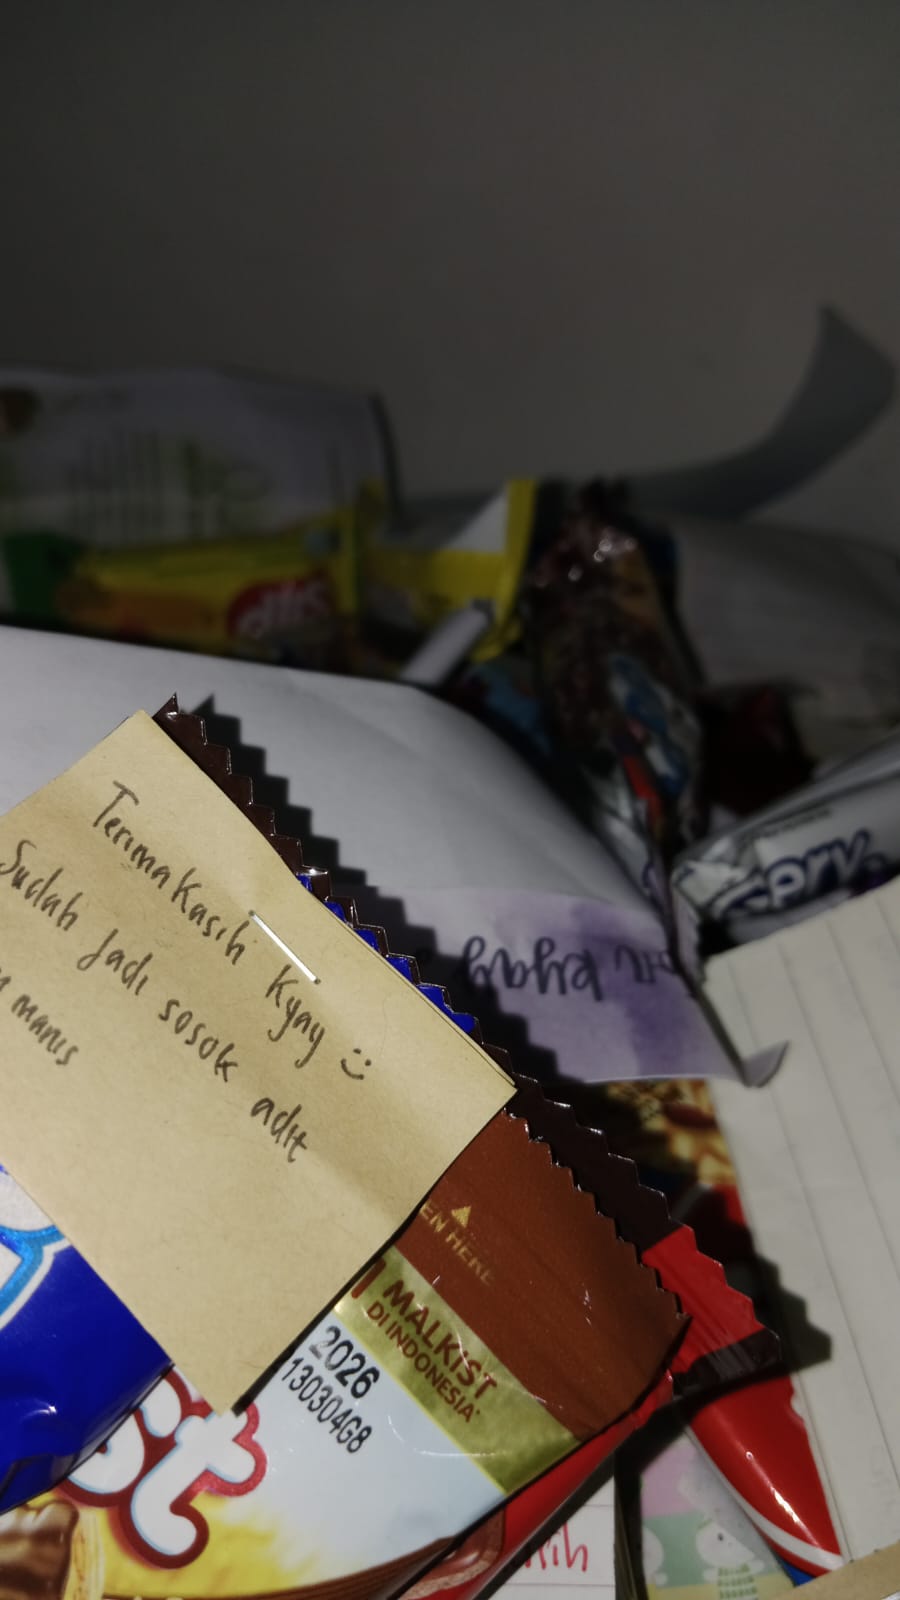 Terimakasih Kyay :)
Sudah Jadi sosok adit
manis
kyay
EN HERE
1 MALKIST
DI INDONESIA*
2026
130304G8
st